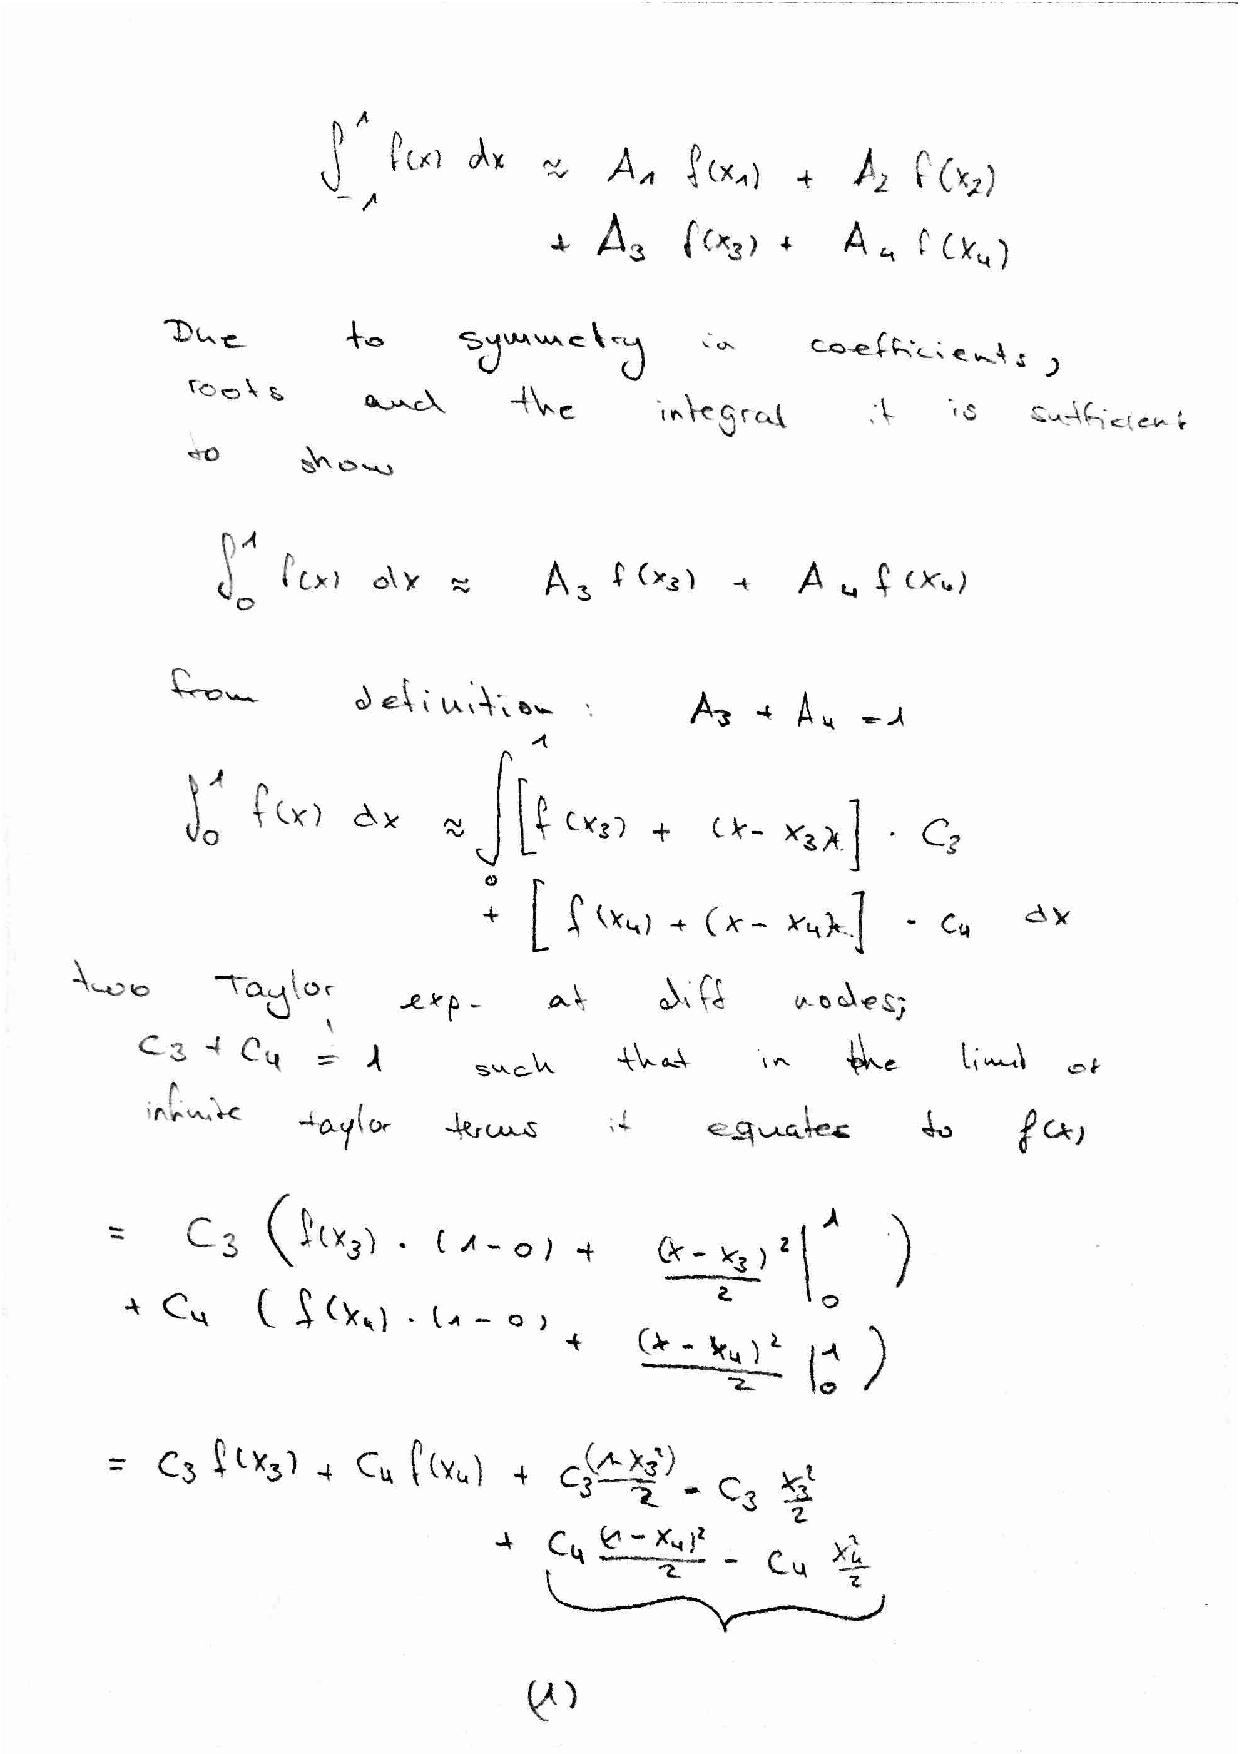 ∫_{-1}^{1} f(x) dx ≈ A_1 f(x_1) + A_2 f(x_2)
+ A_3 f(x_3) + A_4 f(x_4)
Due to symmetry in coefficients,
roots and the integral it is sufficient
to show
∫_0^1 f(x) dx ≈ A_3 f(x_3) + A_4 f(x_4)
from definition : A_3 + A_4 = 1
∫_0^1 f(x) dx ≈ ∫_0^1 [f(x_3) + (x - x_3)] · C_3
+ [f(x_4) + (x - x_4)] · C_4 dx
two Taylor exp. at diff nodes;
C_3 + C_4 = 1 such that in the limit of
infinite taylor terms it equates to f(x)
= C_3 (f(x_3) · (1-0) + (x - x_3)^2/2 |_0^1 )
+ C_4 (f(x_4) · (1-0) + (x - x_4)^2/2 |_0^1 )
= C_3 f(x_3) + C_4 f(x_4) + C_3 (1-x_3^2)/2 - C_3 x_3^2/2
+ C_4 (1-x_4)^2/2 - C_4 x_4^2/2
(1)